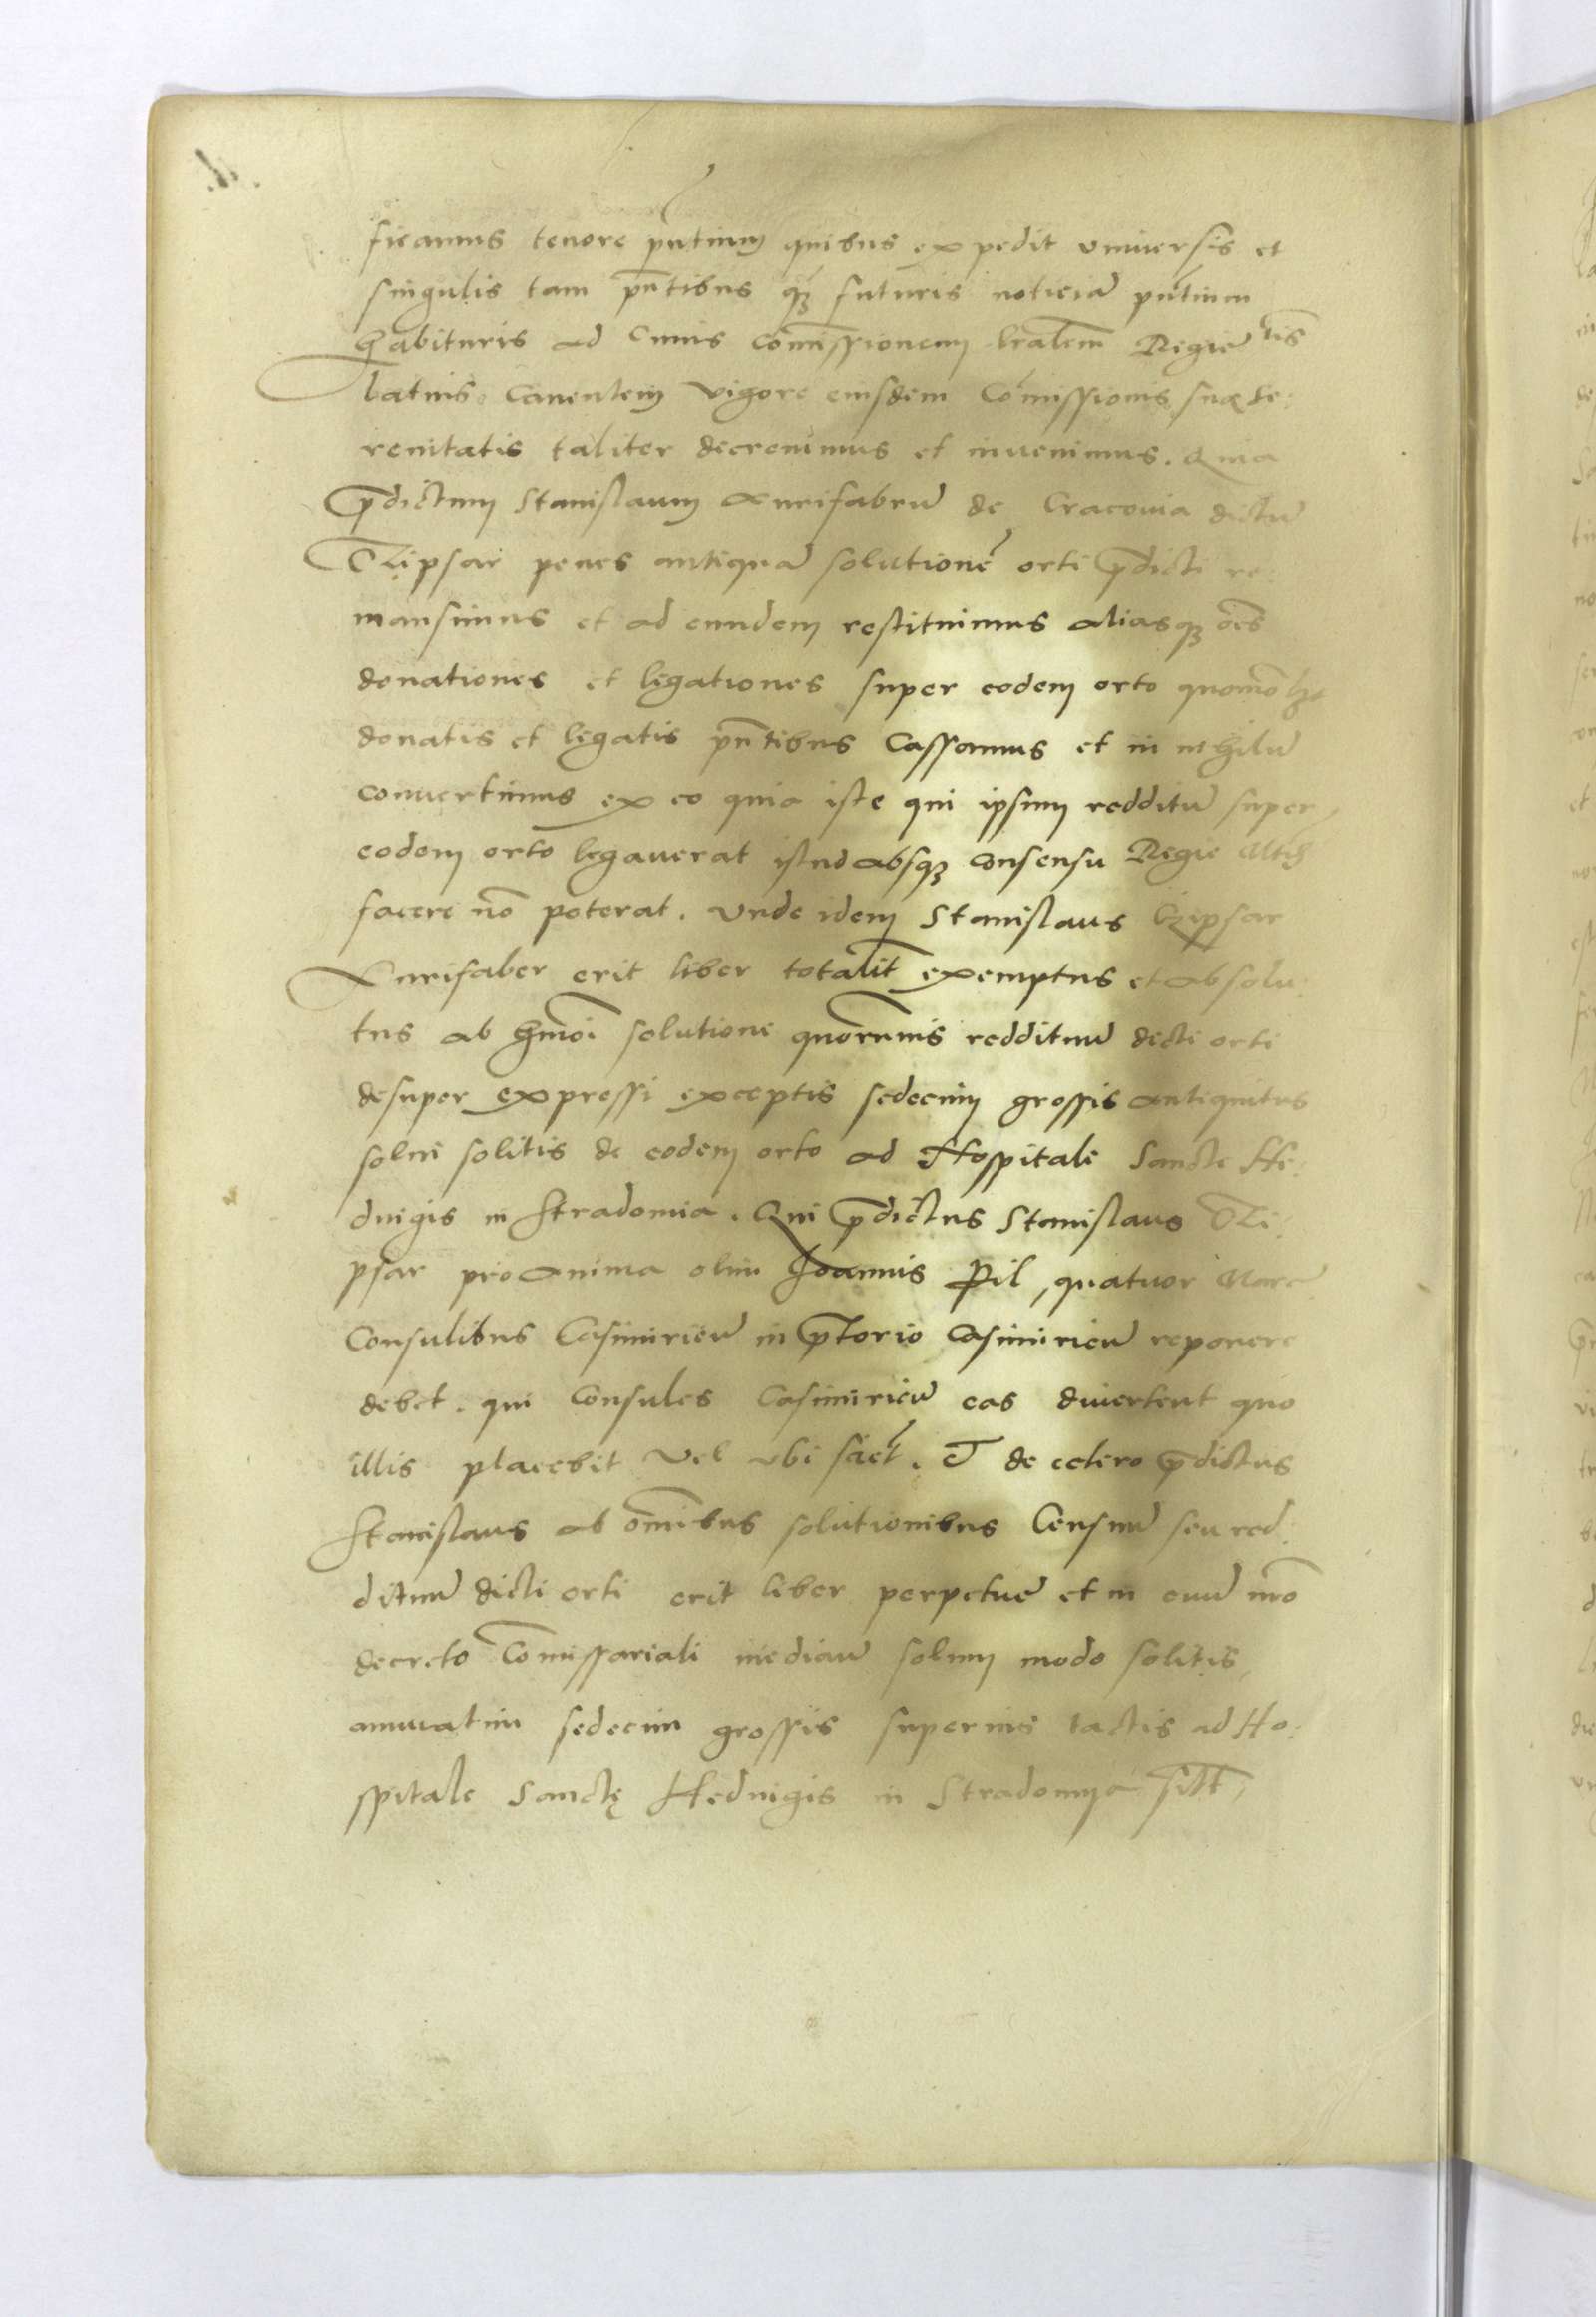 ficamus tenore pñtium quibus expedit universis et
singulis tam pñtibus qz futuris noticiā pñtium
habituris ad cuius comissionem lralem Regie tis
latius canentem vigore eiusdem Comissionis suæ Se:
renitatis taliter decrevimus et invenimus. Quia
prædictum Stanislaum Aurifabrū de Cracovia dictū
Czipsar penes antiquā solutionē orti prædicti re:
mansimus et ad eundem restituimus aliasqz oēs
donationes et legationes super eodem orto quomōlz
donatis et legatis pñtibus Cassamus et in nihilū
convertimus ex eo quia iste qui ipsum redditū super
eodem orto legauerat istud absqz consensu Regie Mtis
facere nō poterat. Unde idem Stanislaus Czipsar
Aurifaber erit liber totalit exemptus et absolu:
tus ab hmōi solutione quorumvis reddituū dicti orti
desuper expressi exceptis sedecim grossis antiquitus
solui solitis de eodem orto ad Hospitale Sancte He:
duigis in Stradomia. Qui prædictus Stanislaus Czi:
psar pro anima olim Joannis Pil, quatuor Marc
Consulibus Casimirieñ in prætorio Casimirieñ reponere
debet. qui Consules Casimirieñ eas divertent quo
illis placebit vel ubi sciet. Et de cetero prædictus
Stanislaus ab omībus solutionibus Censuū seu red:
dituū dicti orti erit liber perpetue et in evū nrō
decreto Comissariali mediañ solum modo solitis
annuatim sedecim grossis superius tactis ad Ho:
spitale Sanctę Heduigis in Stradomya